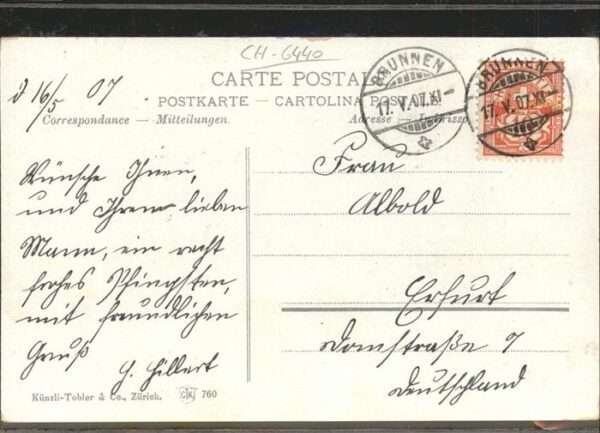 CH-6440
CARTE POSTALE
POSTKARTE — CARTOLINA POSTALE
Correspondance — Mitteilungen. Adresse
BRUNNEN
17.V.07.XI
BRUNNEN
17.V.07.XI
d 16/5 07
Wünsche Ihnen,
und Ihrem lieben
Mann, ein recht
frohes Pfingsten,
mit freundlichen
Gruß
G. Hillert
Frau
Albold
Erfurt
Domstraße 7
Deutschland
Künzli-Tobler & Co., Zürich. 760